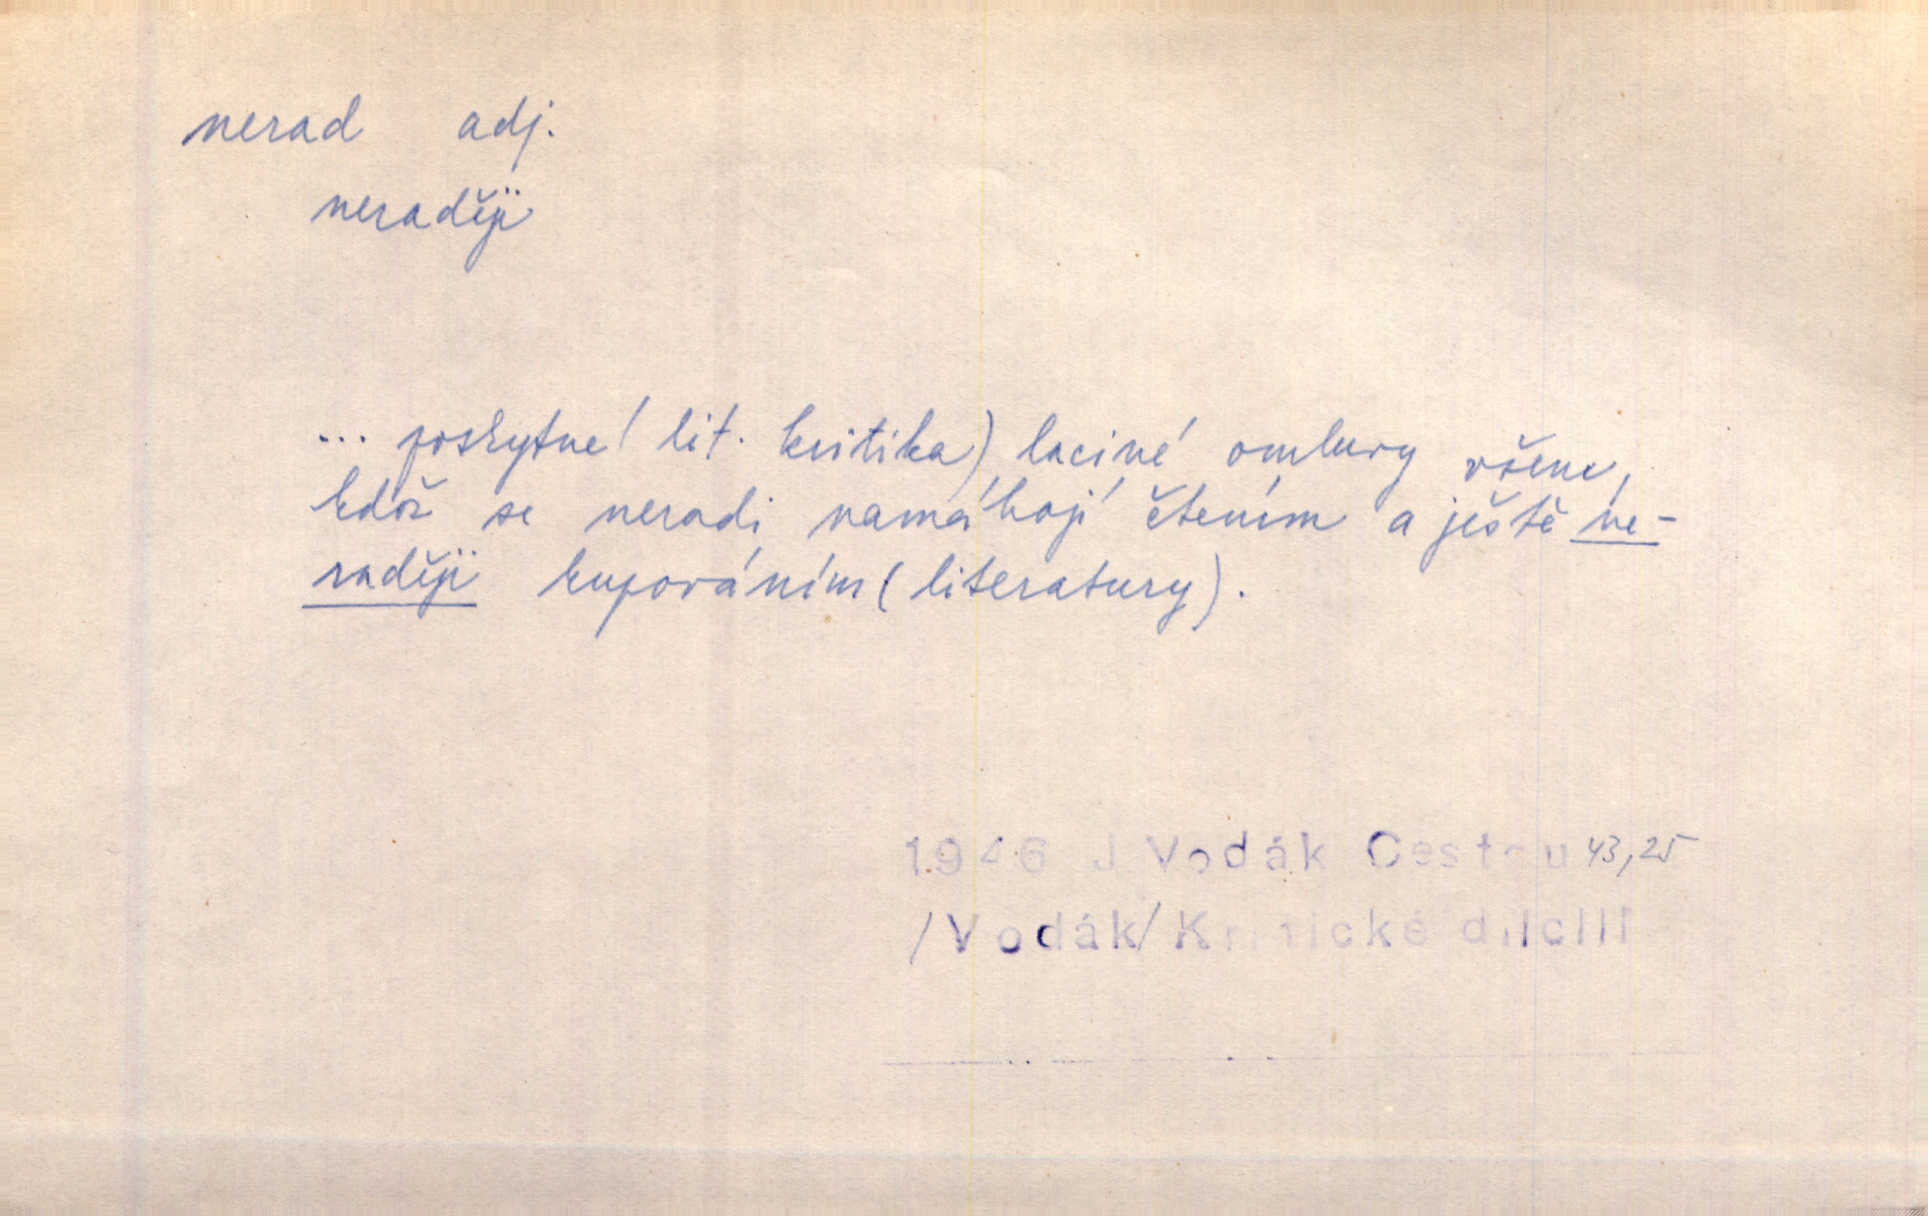 nerad adj.
neraději
... poskytne (lit. kritika) laciné omluvy všem,
kdož se neradi namáhají čtením a ještě ne-
raději kupováním (literatury).
1946 J Vodák Cestou 43,25
/Vodák/ Kritické dílo III